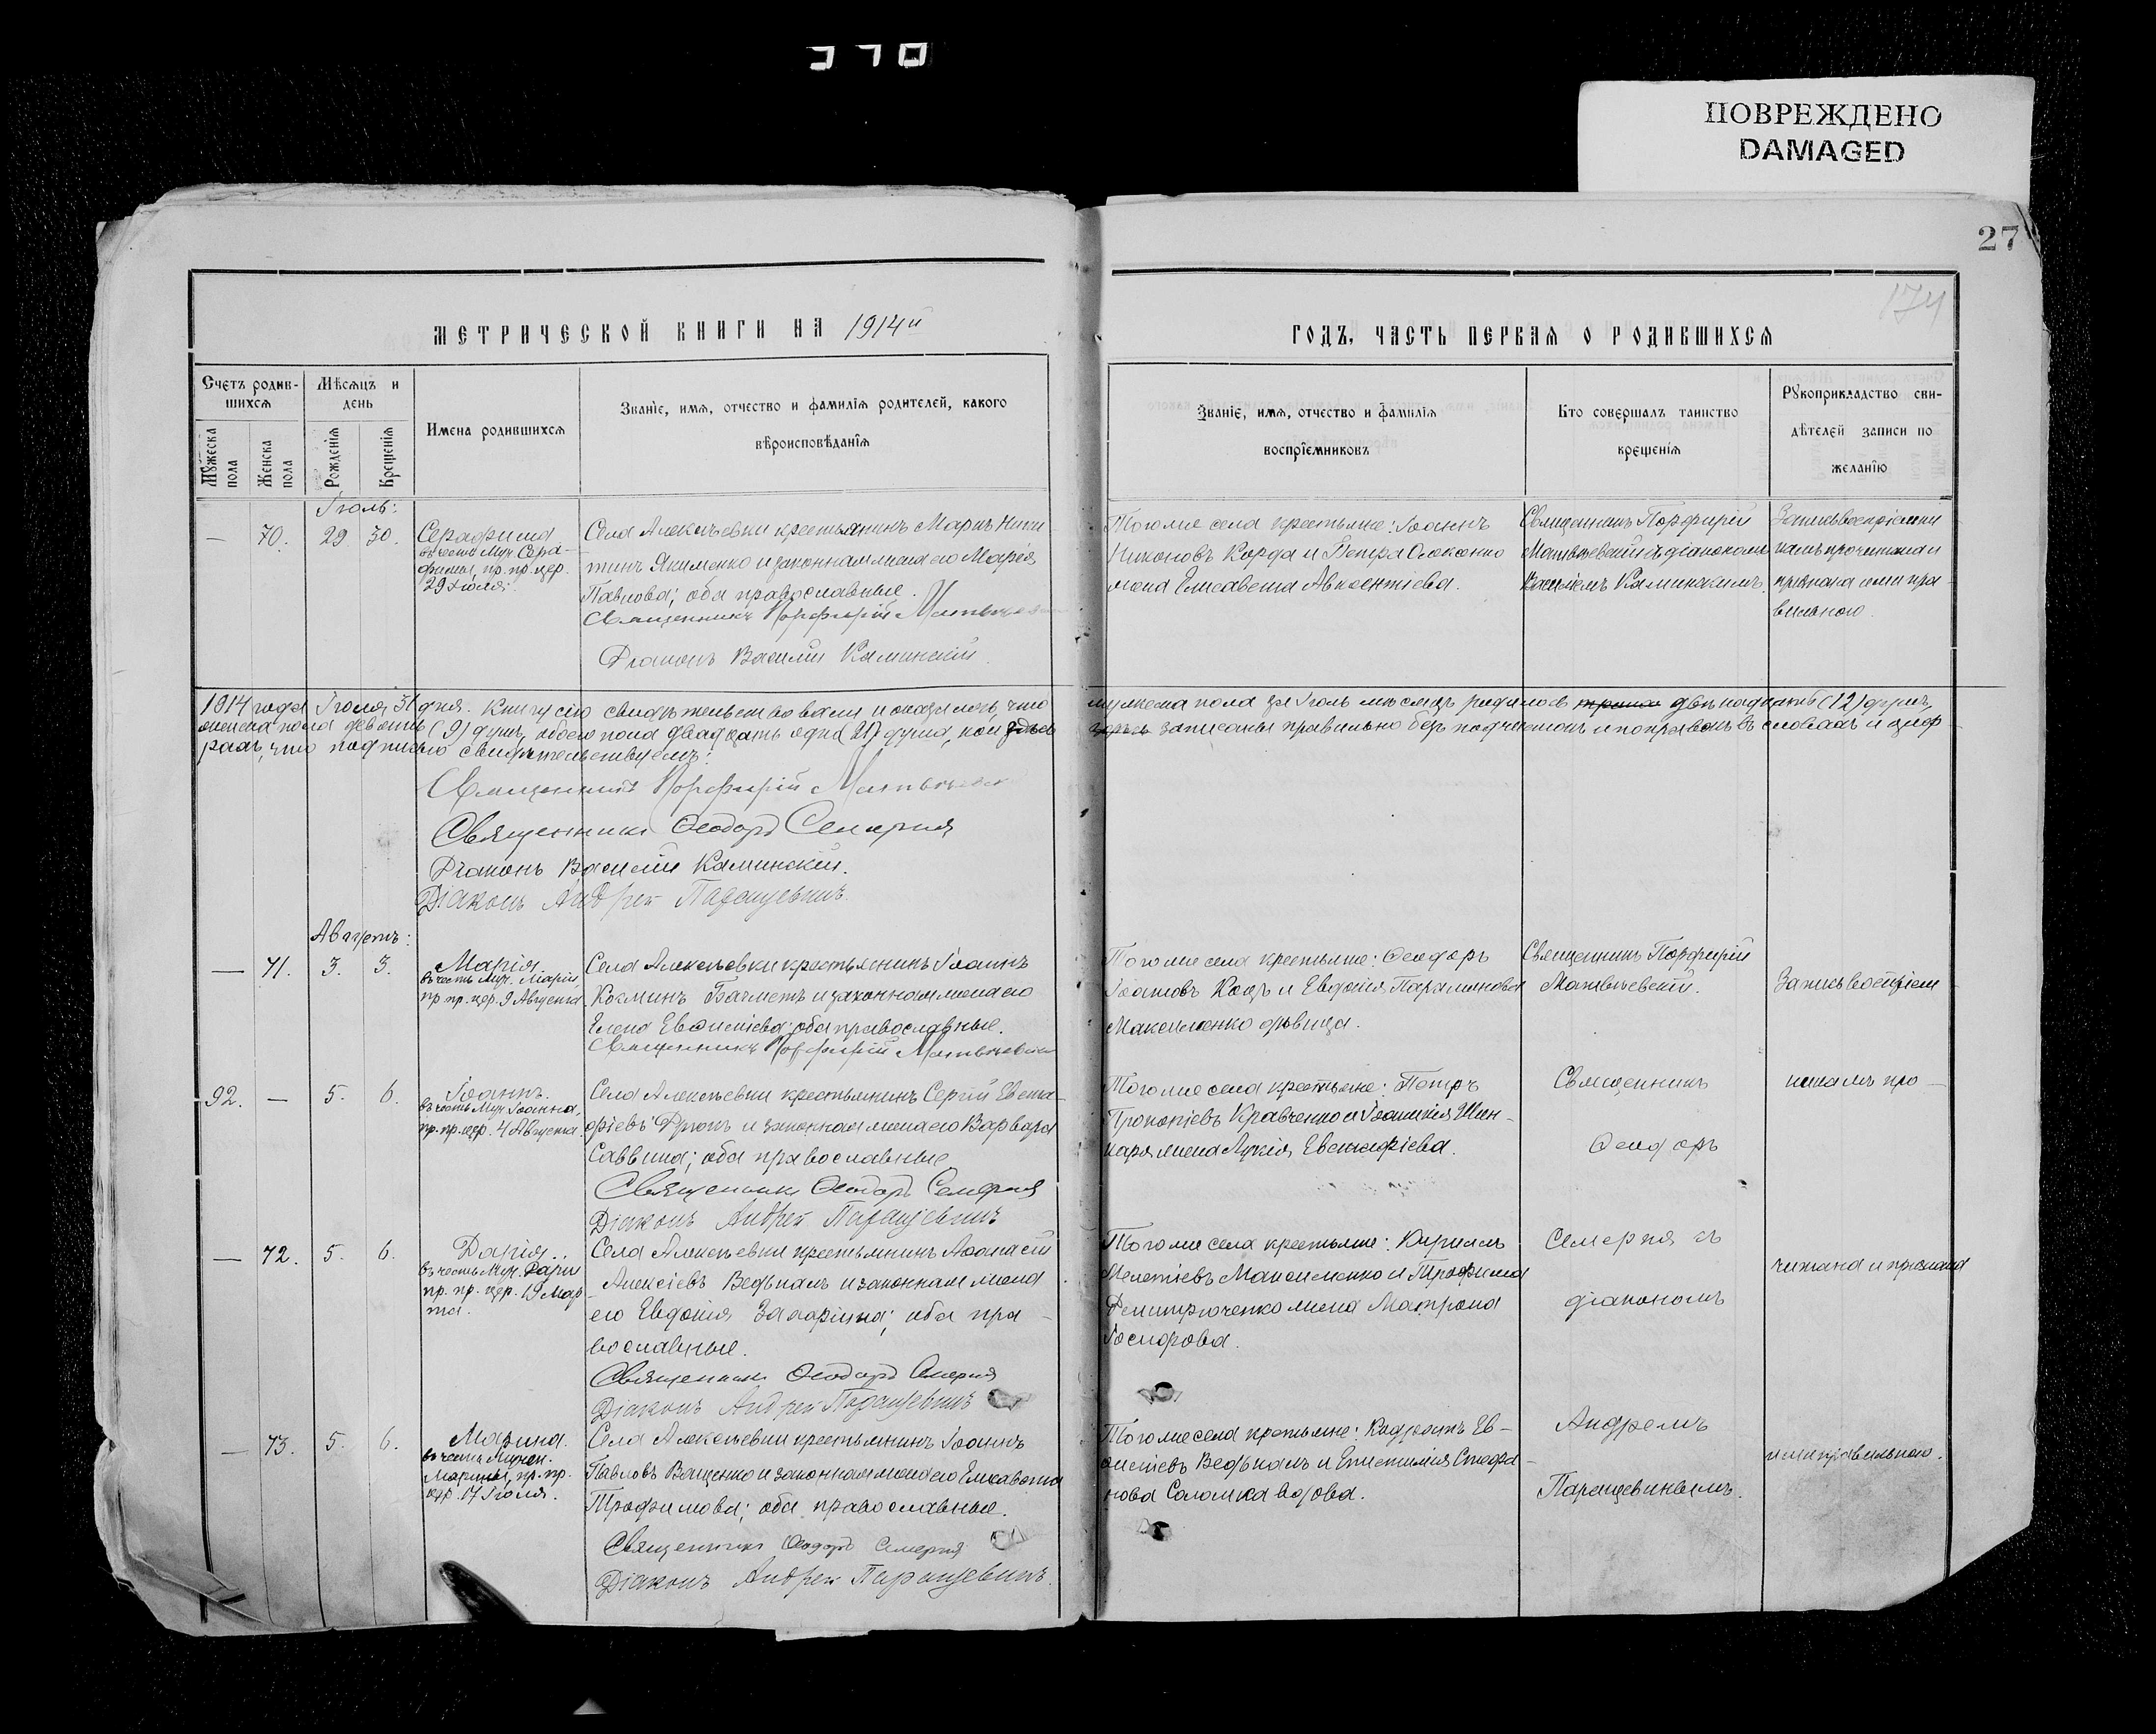 370
ПОВРЕЖДЕНО
DAMAGED
27
174
МЕТРИЧЕСКОЙ КНИГИ НА 1914й
ГОДЪ, ЧАСТЬ ПЕРВАЯ О РОДИВШИХСЯ
Счетъ родив-
шихся
Мужеска пола
Женска пола
Мѣсяцъ и
день
Рожденія
Крещенія
Имена родившихся
Званіе, имя, отчество и фамилія родителей, какого
вѣроисповѣданія
Званіе, имя, отчество и фамилія
воспріемниковъ
Кто совершалъ таинство
крещенія
Рукоприкладство сви-
дѣтелей записи по
желанію
Іюль:
— 70. 29 30.
Серафима
въ честь Муч. Сера-
фимы, пр. пр. цер.
29 Іюля.
Села Алексѣевки крестьянинъ Мартинъ
Якименко и законная жена его Марія
Павлова; оба православные.
Священникъ Порфирій Матвѣевскій
Діаконъ Василій Каминскій.
Тогоже села крестьяне: Іоаннъ
Никоновъ Корда и Петра
жена Елисавета Авксентіева.
Священникъ Порфирій
Матвѣевскій съ діакономъ
Василіемъ Каминскимъ.
Запись воспріемни
камъ прочитана и
признана ими пра-
вильною.
1914 года Іюля 31 дня. Книгу сію свидѣтельствовали и оказалось, что
мужеска пола за Іюль мѣсяцъ родилось двѣнадцать (12) душъ,
женска пола девять (9) душъ, обоего пола двадцать одна (21) душа, кои здѣсь
записаны правильно безъ подчистокъ и поправокъ въ словахъ и циф-
рахъ, что подписью свидѣтельствуемъ:
Священникъ Порфирій Матвѣевскій
Священникъ Ѳеодоръ Семерня
Діаконъ Василій Каминскій.
Діаконъ Андрей Паращевинъ.
Августъ:
— 71. 3. 3.
Марія
въ честь Муч. Маріи,
пр. пр. цер. 9 Августа
Села Алексѣевки крестьянинъ Іоаннъ
Косминъ Бачметъ и законная жена его
Елена Евсиміева; оба православные.
Священникъ Порфирій Матвѣевскій
Тогоже села крестьяне: Ѳеодоръ
Іоанновъ Коцъ и Евдокія Парамонова
Максименко дѣвица.
Священникъ Порфирій
Матвѣевскій.
Запись воспріем
92. — 5. 6.
Іоаннъ.
въ честь Муч. Іоанна,
пр. пр. цер. 4 Августа.
Села Алексѣевки крестьянинъ Сергій Евста-
фіевъ Дрюкъ и законная жена его Варвара
Саввина; оба православные
Священникъ Ѳеодоръ Семерня
Діаконъ Андрей Паращевинъ
Тогоже села крестьяне: Петръ
Прокопіевъ Кравченко и Іоанникія Шин-
каря жена Лукія Евстафіева.
Священникъ
Ѳеодоръ
никамъ про-
— 72. 5. 6.
Дарія.
въ честь Муч. Даріи
пр. пр. цер. 19 Мар-
та.
Села Алексѣевки крестьянинъ Аѳанасій
Алексіевъ Ведькалъ и законная жена
его Евдокія Захаріина; оба пра-
вославные.
Священникъ Ѳеодоръ Семерня
Діаконъ Андрей Паращевинъ
Тогоже села крестьяне: Кириллъ
Мелетіевъ Максименко и Трофима
Димитрюченко жена Матрона
Іосифова.
Семерня съ
діакономъ
читана и признана
— 73. 5. 6.
Марина.
въ честь Мучен.
Марины, пр. пр.
цер. 17 Іюля.
Села Алексѣевки крестьянинъ Іоаннъ
Павловъ Ващенко и законная жена его Елисавета
Трофимова; оба православные.
Священникъ Ѳеодоръ Семерня
Діаконъ Андрей Паращевинъ.
Тогоже села крестьяне: Кодратъ Ев-
Ведькалъ и Епистимія Стефа-
нова Соломка вдова.
Андреемъ
Паращевинымъ.
ими правильною.